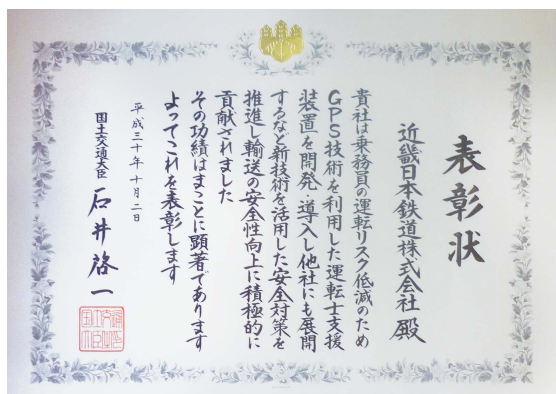 表彰状
近畿日本鉄道株式会社 殿
貴社は乗務員の運転リスク低減のため
GPS技術を利用した運転士支援
装置を開発・導入し他社にも展開
するなど新技術を活用した安全対策を
推進し輸送の安全性向上に積極的に
貢献されました
その功績はまことに顕著であります
よってこれを表彰します
平成三十年十月二日
国土交通大臣 石井啓一